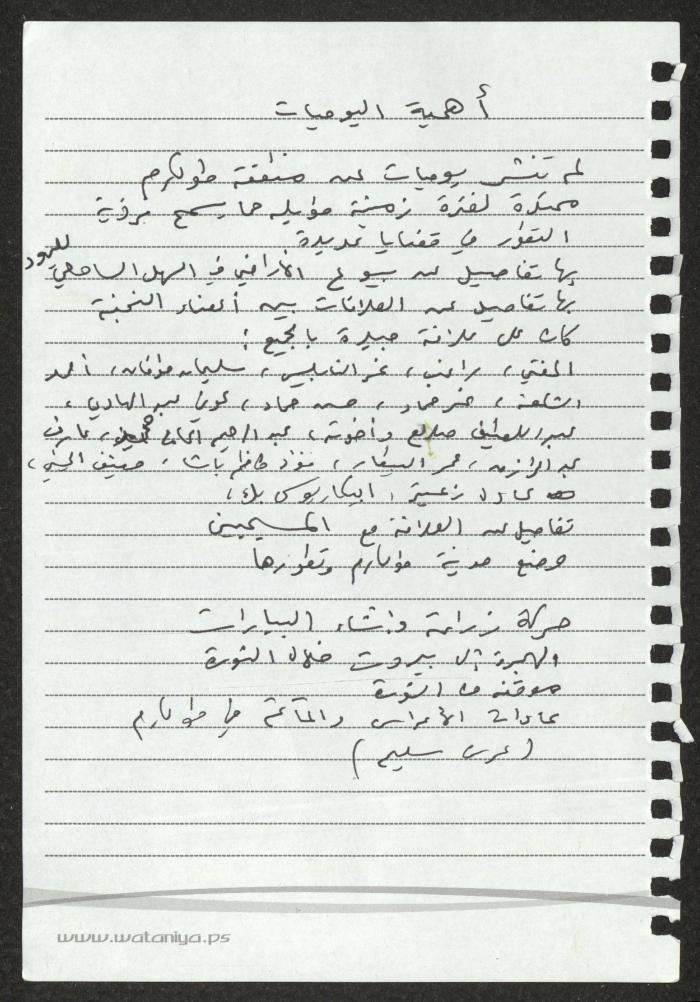 أهمية اليوميات
لم تنشر يوميات عن منطقة طولكرم
ممتدة لفترة زمنية طويلة مما يسمح برؤية
التطور في قضايا عديدة
بها تفاصيل عن بيوع الأراضي في السهل الساحلي لليهود
بها تفاصيل عن العلاقات بين أعضاء النخبة
كان على علاقة جيدة بالجميع :
المفتي، راغب، النابلسي، سليمان طوقان، أحمد
الشكعة، حماد، حسن حماد، عوني عبد الهادي،
عبد اللطيف صلاح وأخوته، عبد الرحيم الحاج محمد، عارف
عبد الرازق، عمر البيطار، حنيف الحسني،
عادل زعيتر، ابيكاريوس بك،
تفاصيل عن العلاقة مع المسيحيين
وضع مدينة طولكرم وتطورها
حركة زراعة وإنشاء البيارات
الهجرة إلى بيروت خلال الثورة
موقفه من الثورة
عادات الأعراس والمآتم في طولكرم
(عرس سليم)
www.wataniya.ps